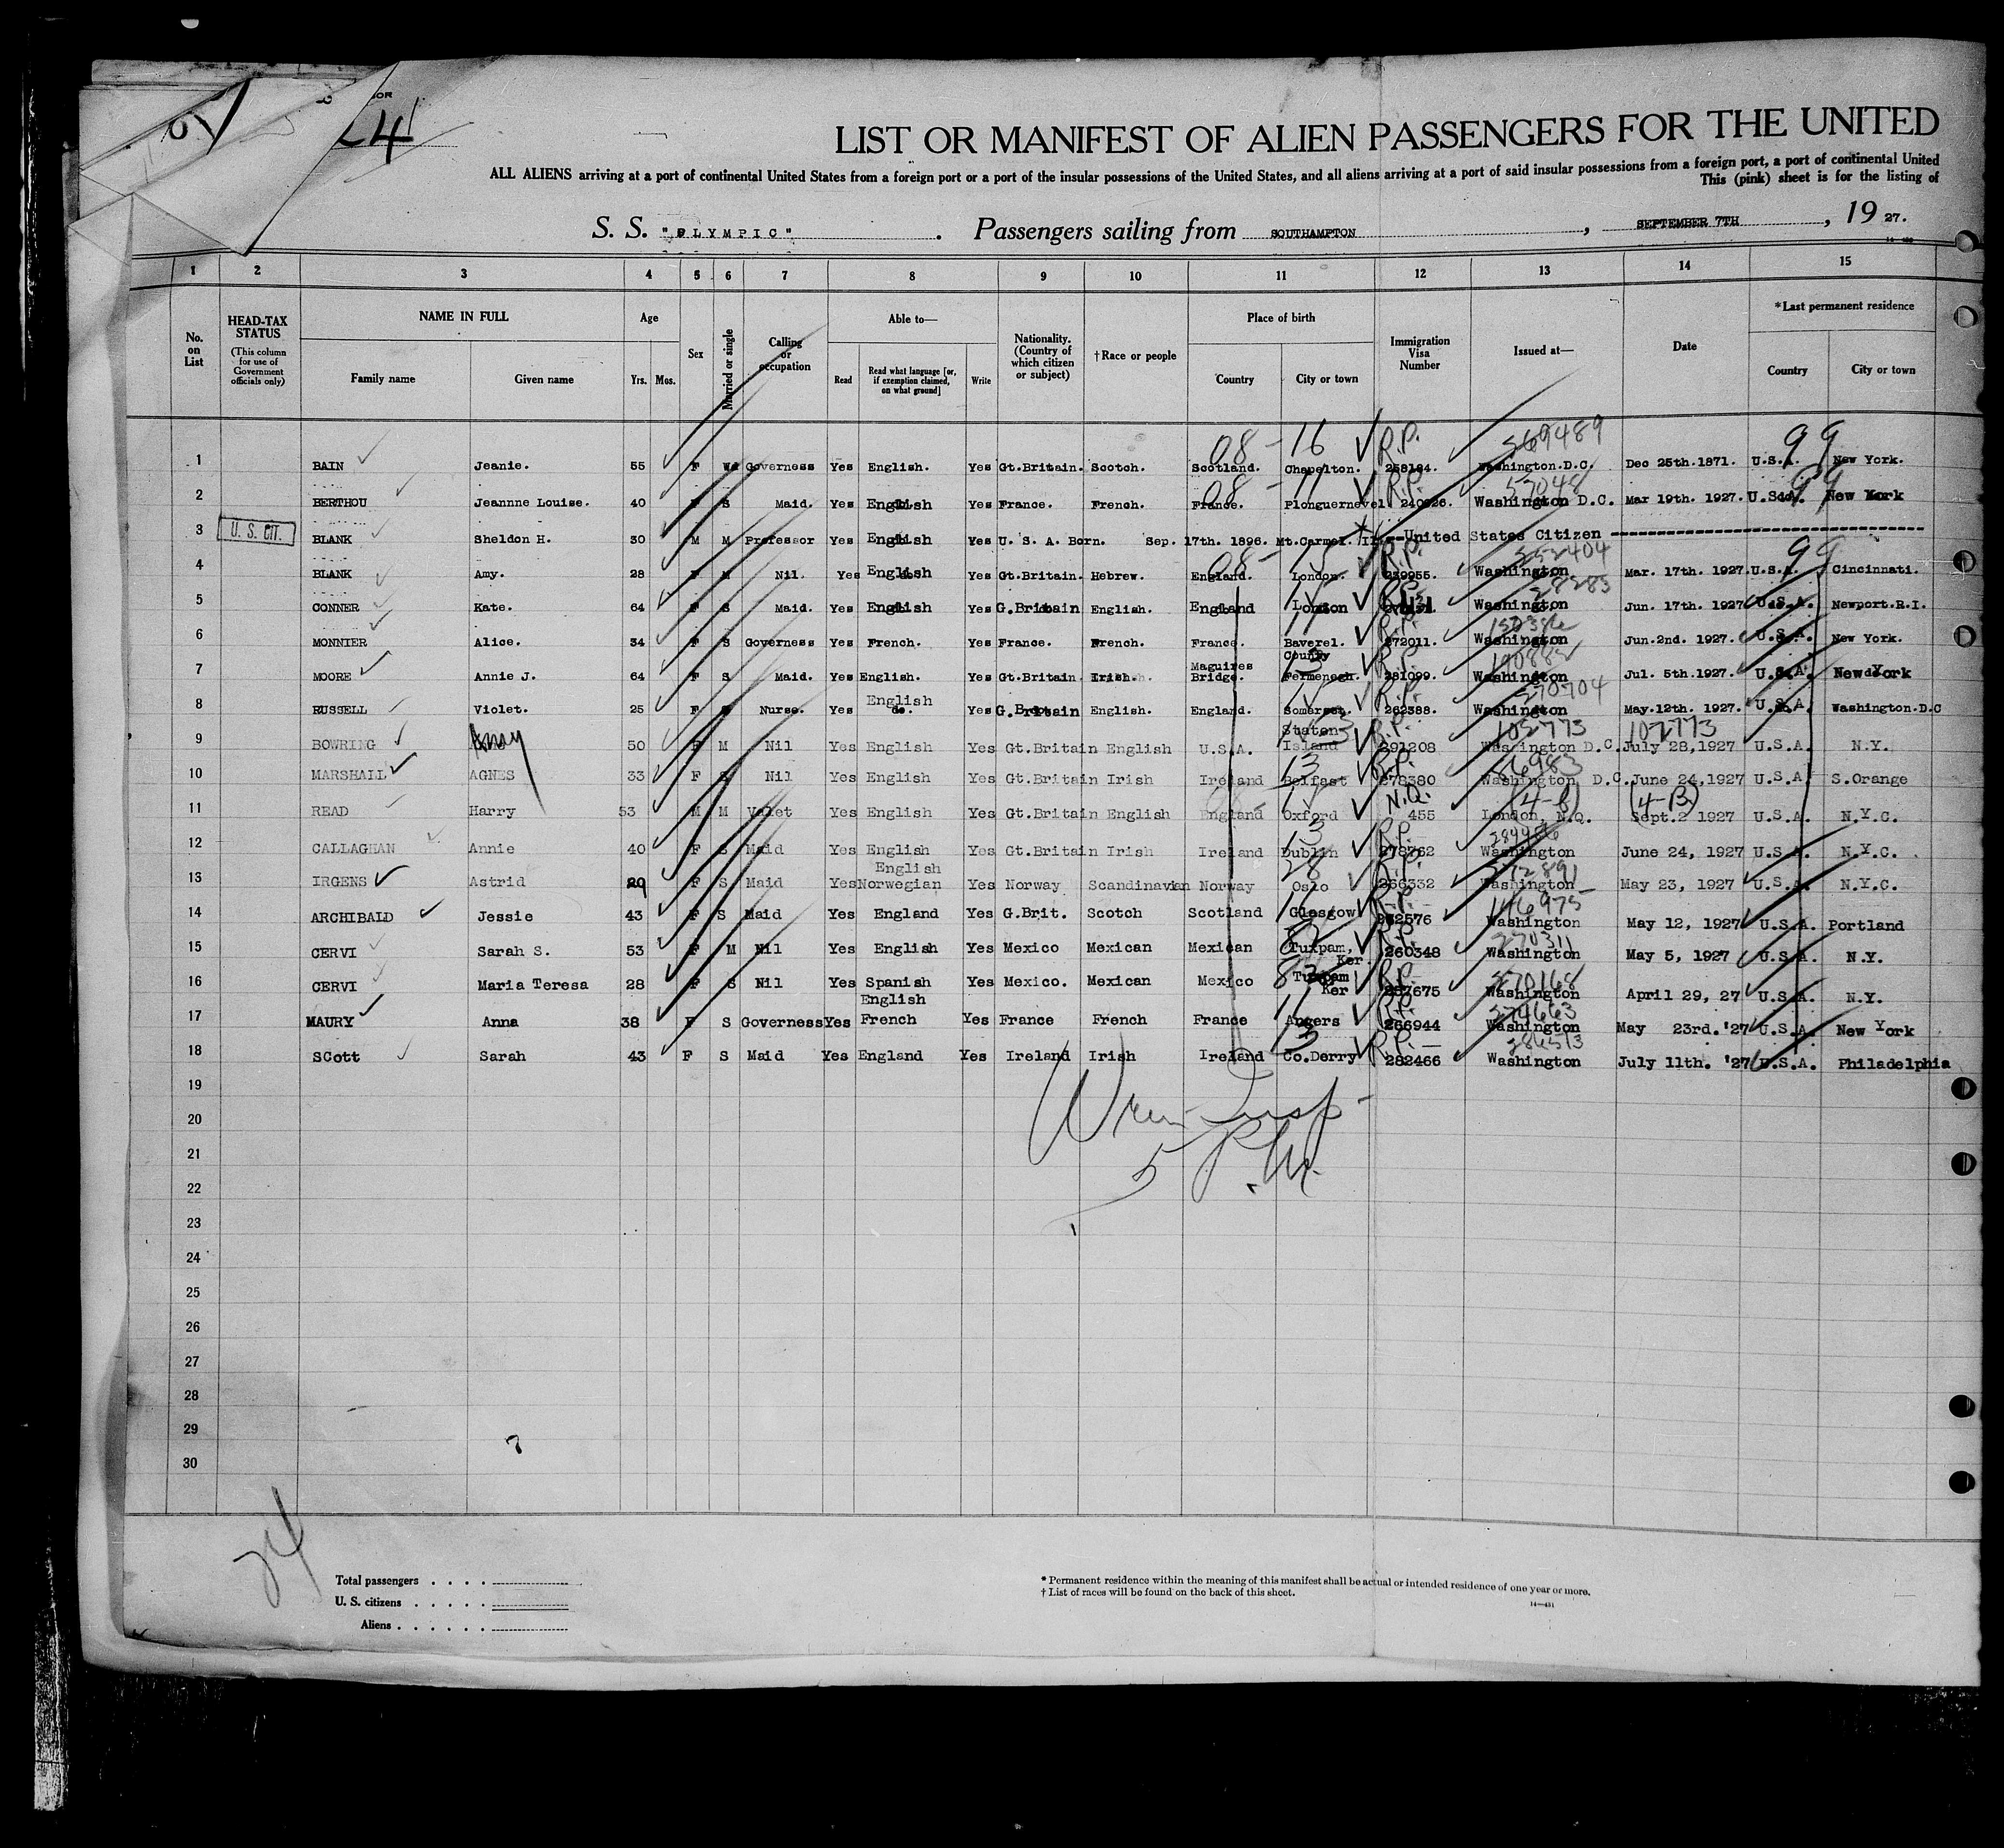 24
LIST OR MANIFEST OF ALIEN PASSENGERS FOR THE UNITED
ALL ALIENS arriving at a port of continental United States from a foreign port or a port of the insular possessions of the United States, and all aliens arriving at a port of said insular possessions from a foreign port, a port of continental United
This (pink) sheet is for the listing of
S. S. "OLYMPIC" . Passengers sailing from SOUTHAMPTON , SEPTEMBER 7TH , 19 27.
1 2 3 4 5 6 7 8 9 10 11 12 13 14 15
No. on List HEAD-TAX STATUS (This column for use of Government officials only) NAME IN FULL Family name Given name Age Yrs. Mos. Sex Married or single Calling or occupation Able to— Read Read what language [or, if exemption claimed, on what ground] Write Nationality. (Country of which citizen or subject) †Race or people Place of birth Country City or town Immigration Visa Number Issued at— Date *Last permanent residence Country City or town
08-16 R.P. 369489 99
1 BAIN Jeanie. 55 F Wd Governess Yes English. Yes Gt.Britain. Scotch. Scotland. Chapelton. 258194. Washington.D.C. Dec 25th.1871. U.S.A. New York.
08-11 R.P. 57048 99
2 BERTHOU Jeannne Louise. 40 F S Maid. Yes English Yes France. French. France. Plonguernevel 240626. Washington D.C. Mar 19th. 1927. U.S.A. New York
3 U. S. CIT. BLANK Sheldon H. 30 M M Professor Yes English Yes U. S. A. Born. Sep. 17th. 1896. Mt.Carmel. Ill --United States Citizen --------
08-15 R.P. 99
4 BLANK Amy. 28 F M Nil. Yes English Yes Gt.Britain. Hebrew. England. London. 239955. Washington Mar. 17th. 1927. U.S.A. Cincinnati.
5 CONNER Kate. 64 F S Maid. Yes English Yes G.Britain English. England London Washington Jun. 17th. 1927 U.S.A. Newport.R.I.
6 MONNIER Alice. 34 F S Governess Yes French. Yes France. French. France. Baverel. 272011. Washington Jun.2nd. 1927. U.S.A. New York.
7 MOORE Annie J. 64 F S Maid. Yes English. Yes Gt.Britain Irish. Maguires Bridge. County Fermenegh. 281099. Washington Jul. 5th.1927. U.S.A. New York
270704
8 RUSSELL Violet. 25 F S Nurse. Yes English Yes G.Britain English. England. Somerset. 262388. Washington May.12th. 1927. U.S.A. Washington.D.C
102773 102773
9 BOWRING Amy 50 F M Nil Yes English Yes Gt.Britain English U.S.A. Staten Island 291208 Washington D.C. July 28,1927 U.S.A. N.Y.
13 R.P. 86983
10 MARSHALL AGNES 33 F S Nil Yes English Yes Gt.Britain Irish Ireland Belfast 278380 Washington D.C. June 24,1927 U.S.A. S.Orange
N.Q. (4-B) (4-B)
11 READ Harry 53 M M Valet Yes English Yes Gt.Britain English England Oxford 455 London, N.Q. Sept.2 1927 U.S.A. N.Y.C.
13 R.P.
12 CALLAGHAN Annie 40 F S Maid Yes English Yes Gt.Britain Irish Ireland Dublin 278762 Washington June 24, 1927 U.S.A. N.Y.C.
28
13 IRGENS Astrid 29 F S Maid Yes English Norwegian Yes Norway Scandinavian Norway Oslo 266332 Washington May 23, 1927 U.S.A. N.Y.C.
146975
14 ARCHIBALD Jessie 43 F S Maid Yes England Yes G.Brit. Scotch Scotland Glasgow 262576 Washington May 12, 1927 U.S.A. Portland
270311
15 CERVI Sarah S. 53 F M Nil Yes English Yes Mexico Mexican Mexican Tuxpam, Ker. 260348 Washington May 5, 1927 U.S.A. N.Y.
82 R.P. 270168
16 CERVI Maria Teresa 28 F S Nil Yes Spanish English Yes Mexico. Mexican Mexico Tuxpam Ker 257675 Washington April 29, 27 U.S.A. N.Y.
11 R.P. 274663
17 MAURY Anna 38 F S Governess Yes French Yes France French France Angers 266944 Washington May 23rd. '27 U.S.A. New York
13 R.P.
18 SCott Sarah 43 F S Maid Yes England Yes Ireland Irish Ireland Co.Derry 282466 Washington July 11th. '27 U.S.A. Philadelphia
19
20
21
5 P.M.
22
23
24
25
26
27
28
29
30
24
Total passengers . . . .
U. S. citizens . . . . .
Aliens . . . . . .
* Permanent residence within the meaning of this manifest shall be actual or intended residence of one year or more.
† List of races will be found on the back of this sheet.
14—431